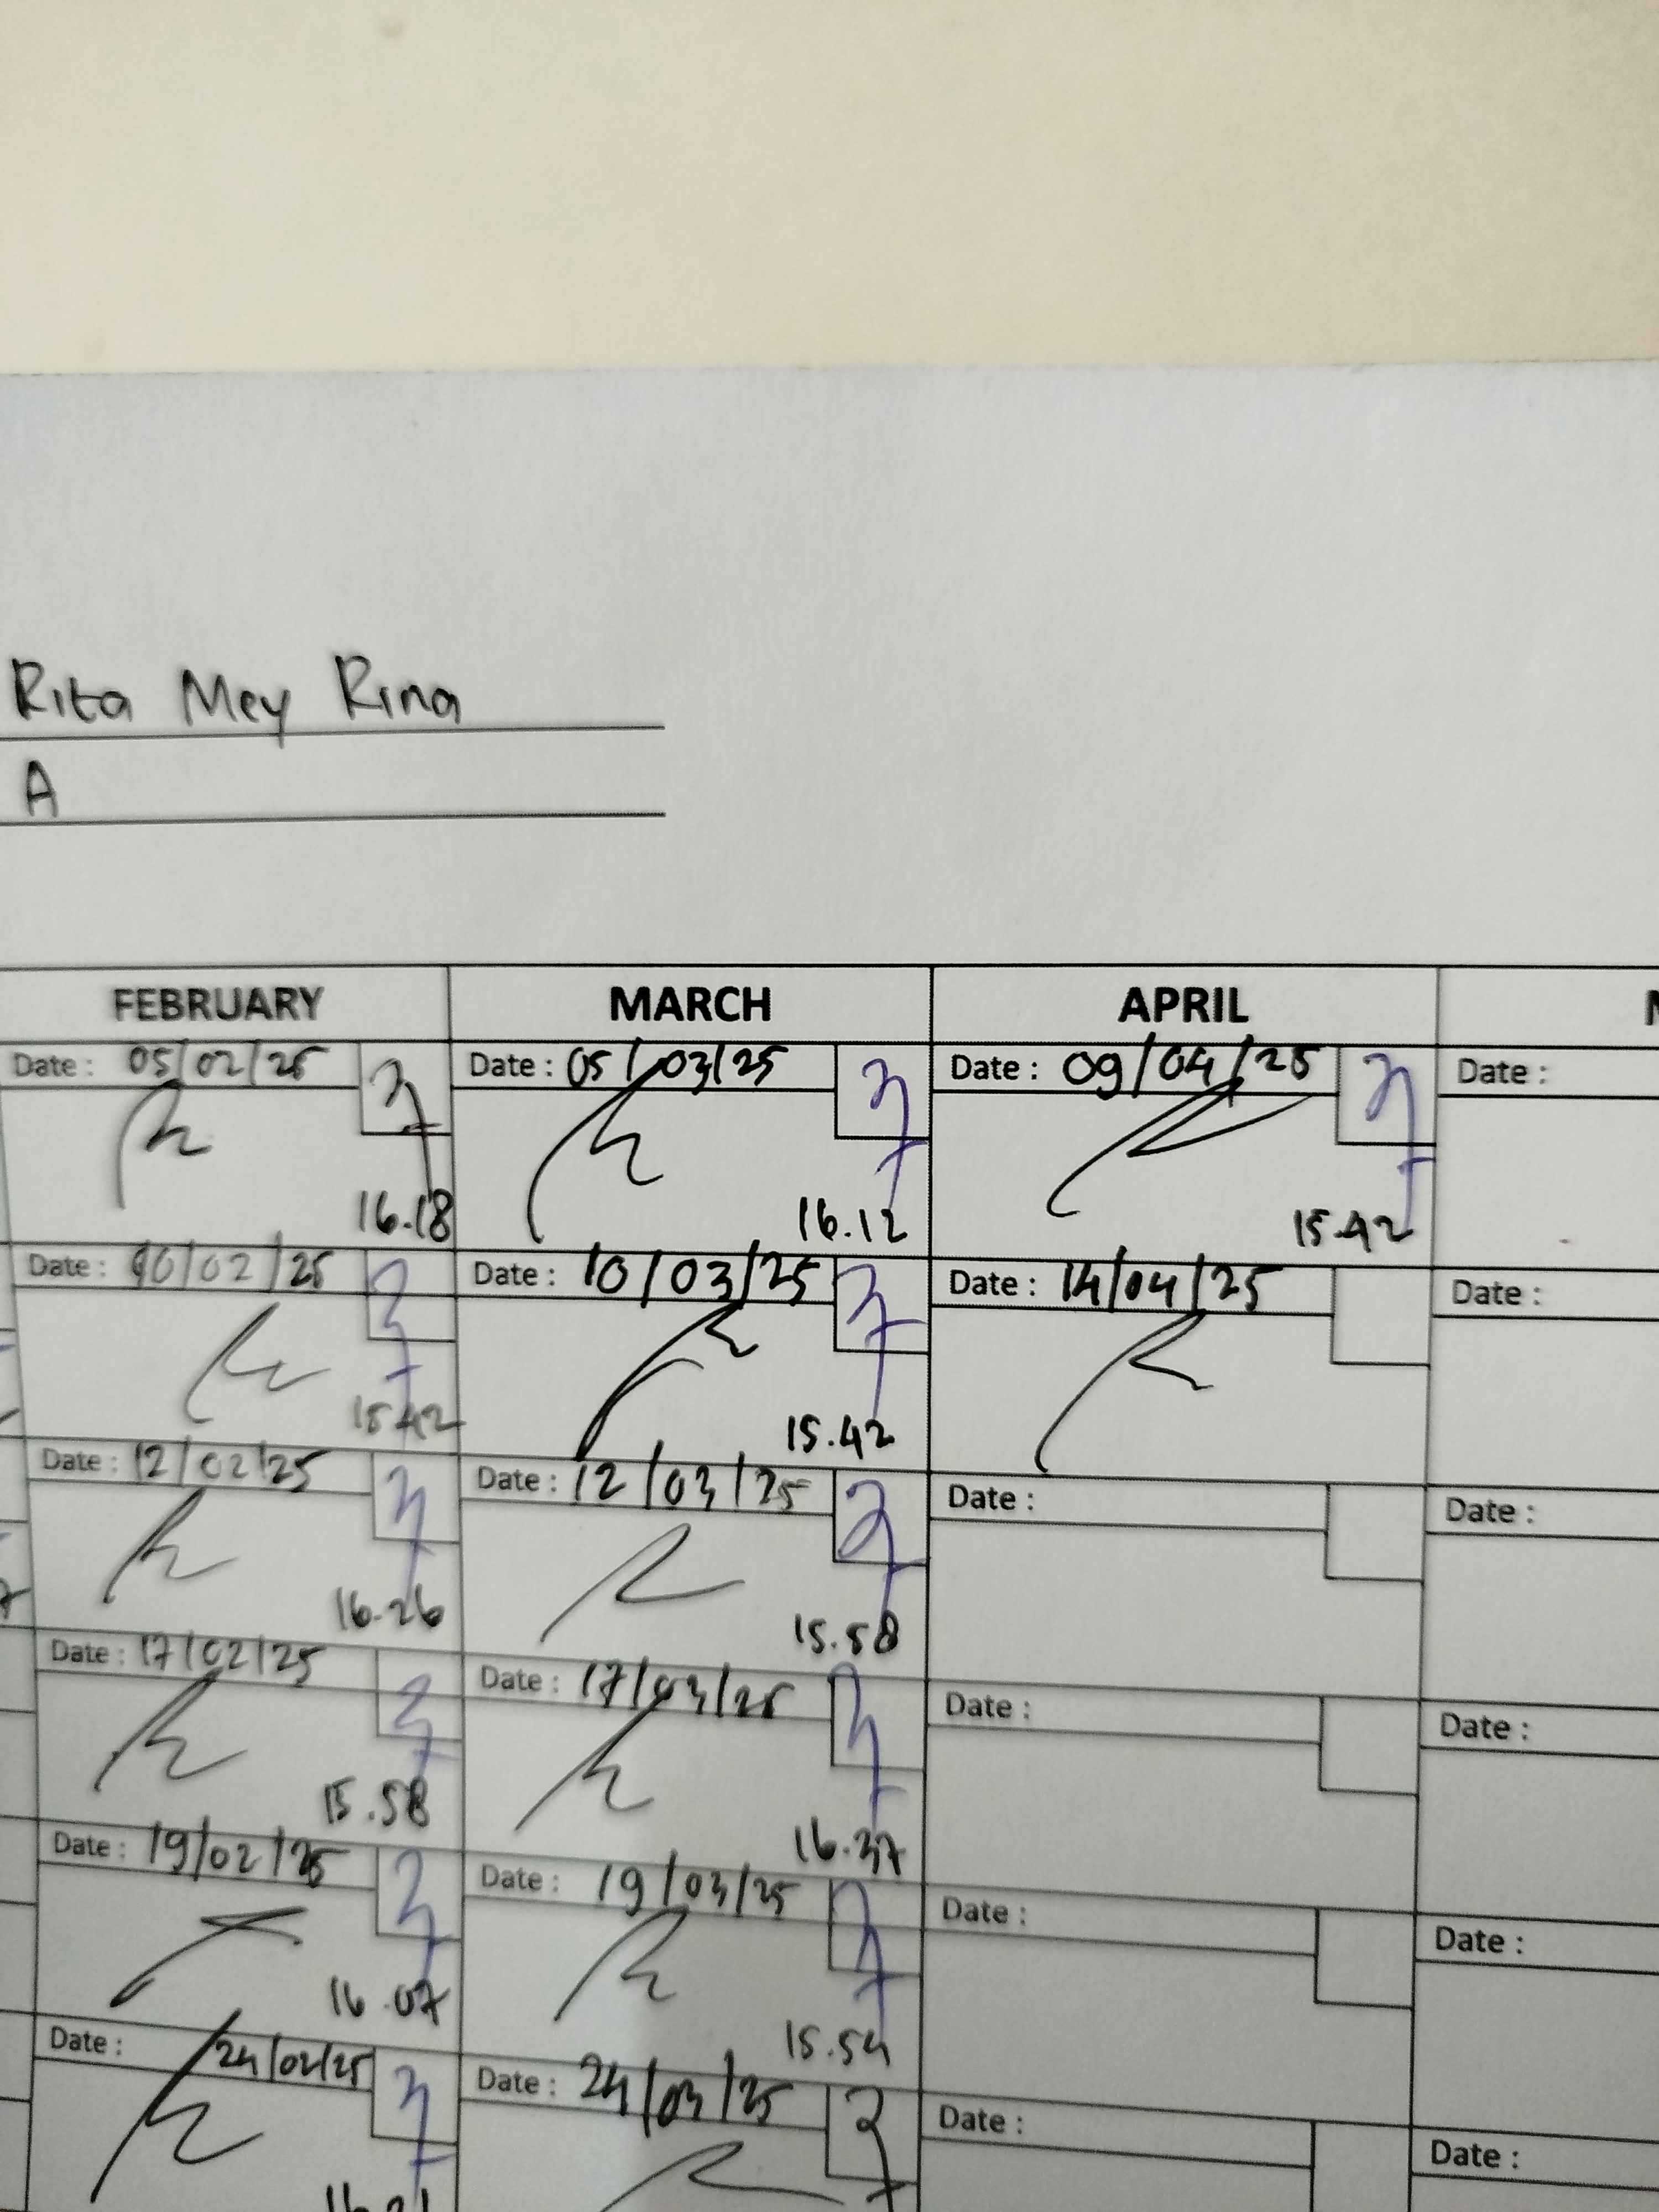 Rita Mey Rina
A
FEBRUARY MARCH APRIL
Date : 05/02/25 Date : 05/03/25 Date : 09/04/25 Date :
16.18 16.12 15.42
Date : 10/02/25 Date : 10/03/25 Date : 14/04/25 Date :
15.42 15.42
Date : 12/02/25 Date : 12/03/25 Date : Date :
16.26 15.58
Date : 17/02/25 Date : 17/03/25 Date : Date :
15.58 16.37
Date : 19/02/25 Date : 19/03/25 Date : Date :
16.07 15.54
Date : 24/02/25 Date : 24/03/25 Date : Date :